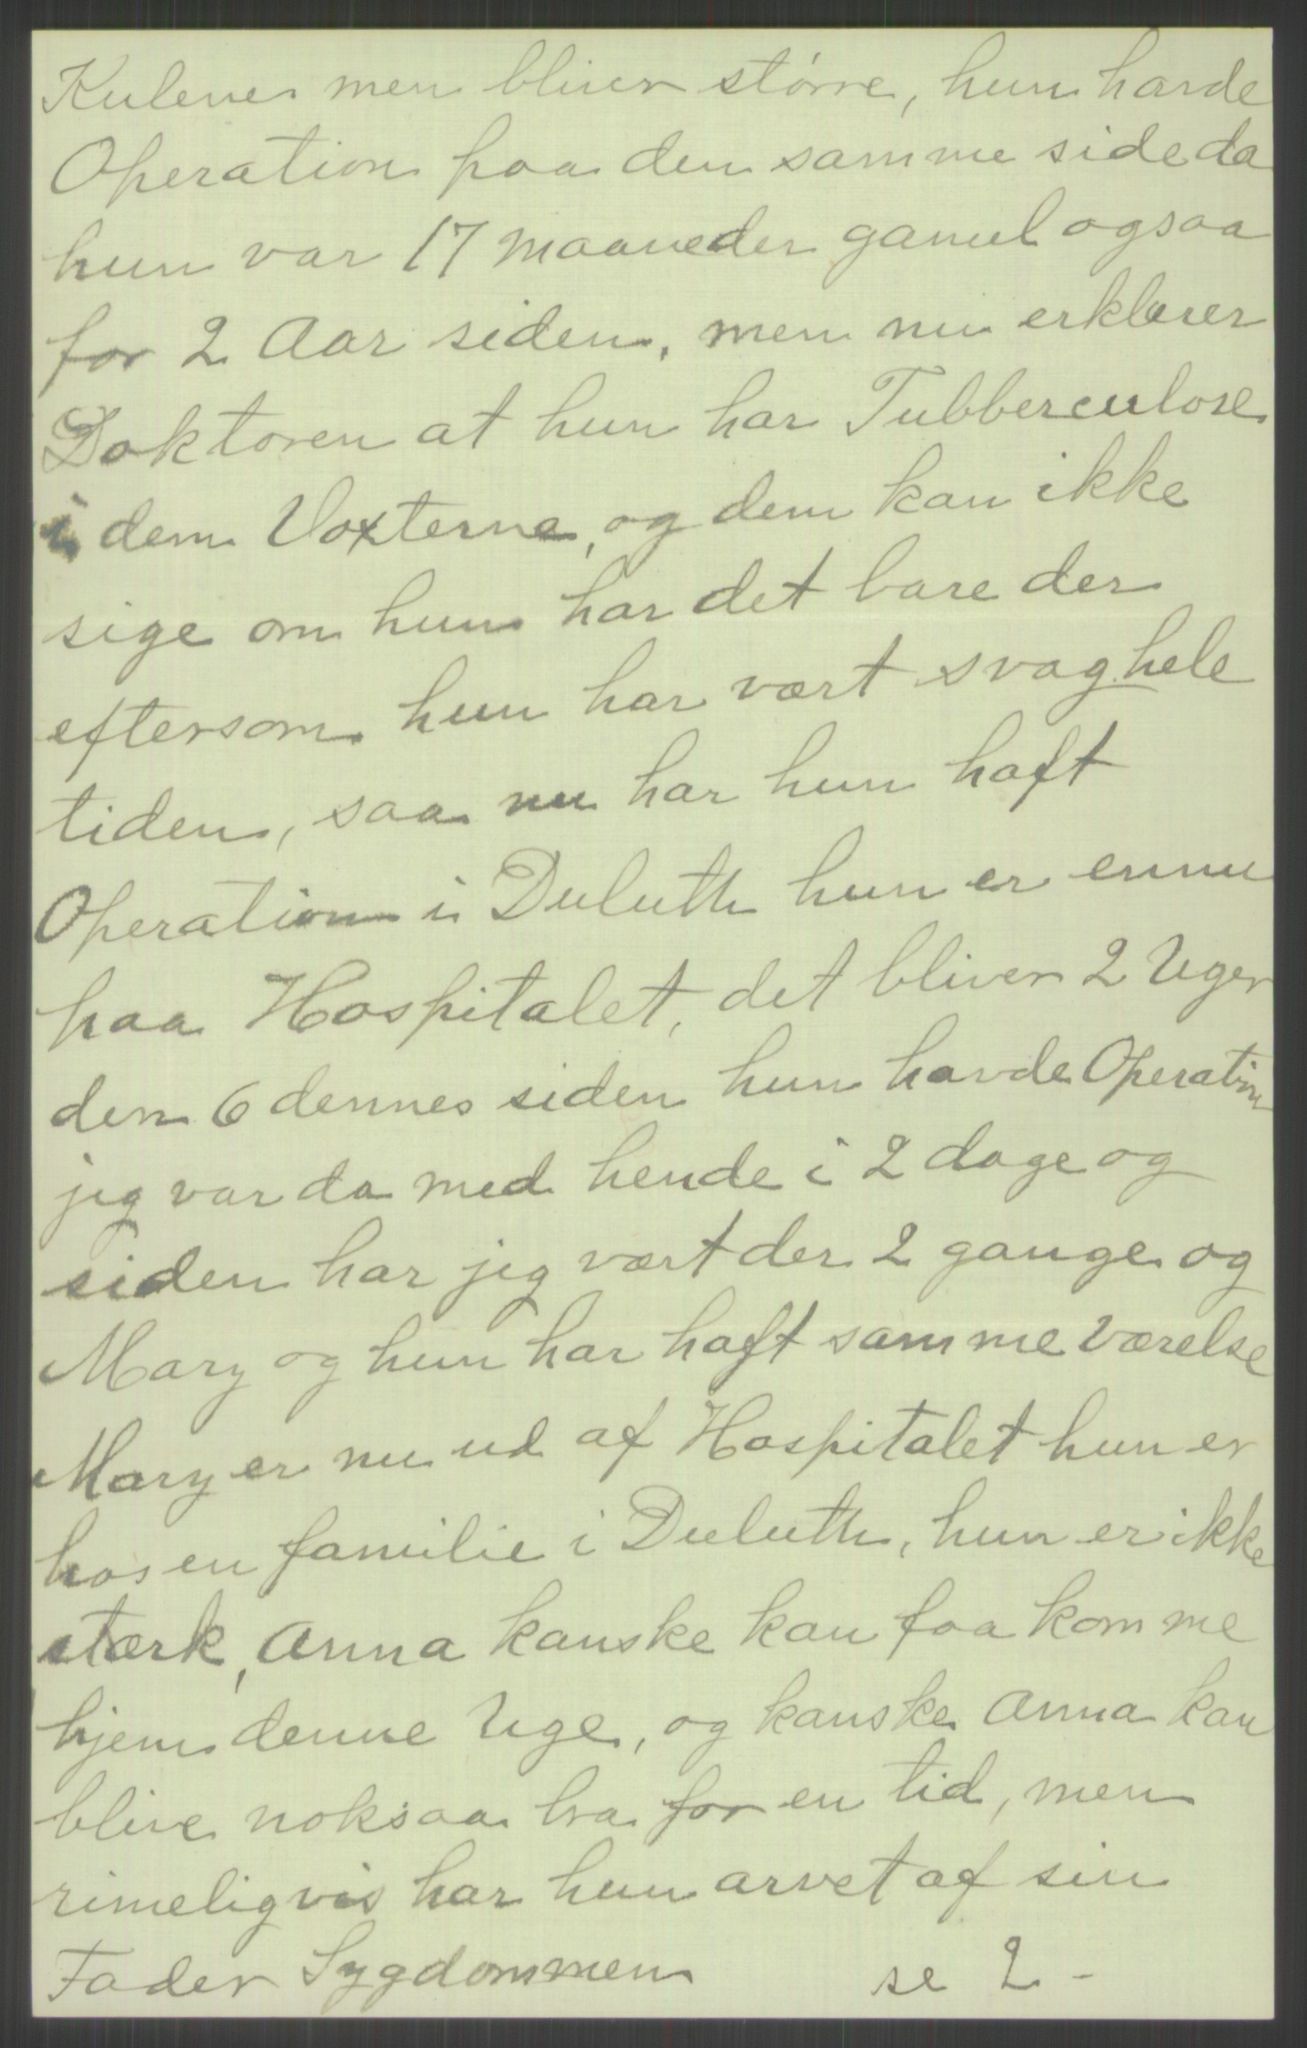 Kulene men bliver større, hun havde
Operation paa den samme side da
hun var 17 maaneder gamel ogsaa
for 2 Aar siden, men nu erklærer
Doktoren at hun har Tubberculose
i dem Voxterne, og dem kan ikke
sige om hun har det bare der
eftersom hun har vært svag hele
tiden, saa nu har hun haft
Operation i Duluth hun er ennu
paa Hospitalet, det bliver 2 Uger
den 6 dennes siden hun havde Operation
jeg var da med hende i 2 dage og
siden har jeg vært der 2 gange og
Mary og hun har haft samme Værelse
Mary er nu ud af Hospitalet hun er
hos en familie i Duluth, hun er ikke
stærk, Anna kanske kan faa komme
hjem denne Uge, og kanske Anna kan
blive noksaa bra for en tid, men
rimeligvis har hun arvet af sin
Fader Sygdommen se 2 -